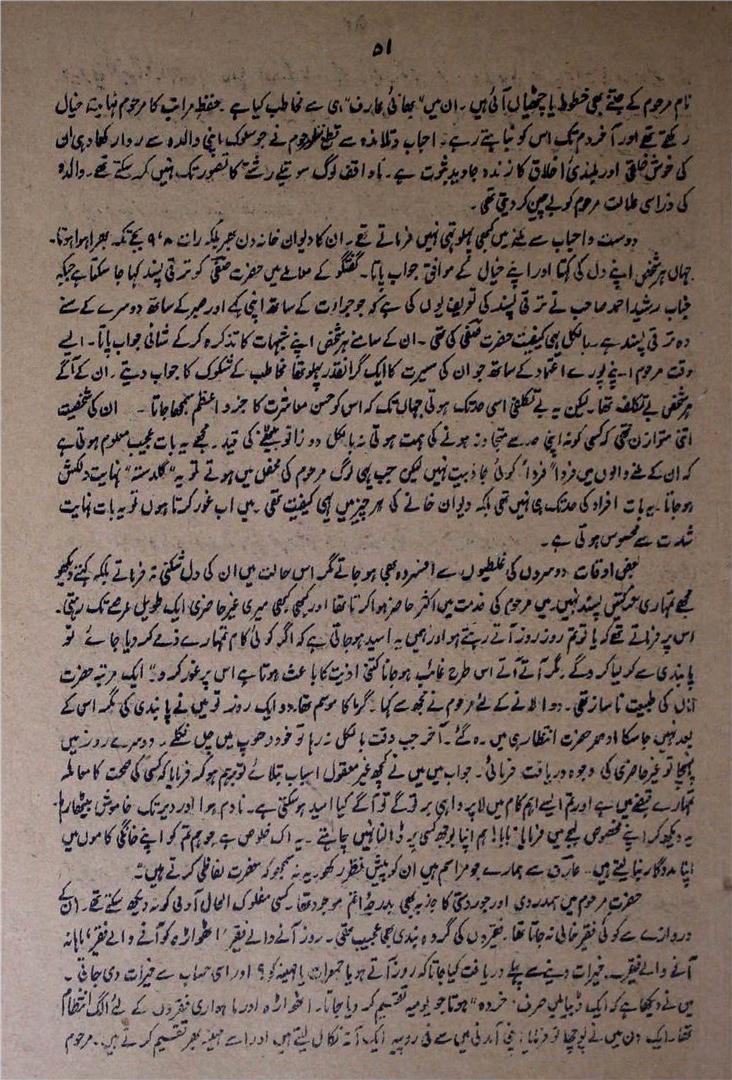 ۵۱
نام مرحوم کے جتنے بھی خطوط یا چٹھیاں آئی ہیں۔ ان میں "بھائی عارف" ہی سے مخاطب کیا ہے۔ حفظ مراتب کا مرحوم نہایت خیال
رکھتے تھے اور آخر دم تک اس کو نباہتے رہے۔ احباب و تلامذہ سے قطع نظر مرحوم نے جو سلوک اپنی والدہ سے روا رکھا وہی ان
کی خوش خلقی اور بلندئ اخلاق کا زندہ جاوید ثبوت ہے۔ ناواقف لوگ سوتیلے رشتے کا تصور تک نہیں کر سکتے تھے۔ والدہ
کی ذرا سی علالت مرحوم کو بے چین کر دیتی تھی۔
دوست و احباب سے ملنے میں کبھی پہلو تہی نہیں فرماتے تھے۔ ان کا دیوان خانہ دن بھر بلکہ رات ۸، ۹ بجے تک بھرا ہوا ہوتا۔
جہاں ہر شخص اپنے دل کی کہتا اور اپنے خیال کے موافق جواب پاتا۔ گفتگو کے معاملے میں حضرت صفی کو ترقی پسند کہا جا سکتا ہے جبکہ
جناب رشید احمد صاحب نے ترقی پسند کی تعریف یوں کی ہے کہ جو جراءت کے ساتھ اپنی کہے اور صبر کے ساتھ دوسرے کے سنے
وہ ترقی پسند ہے۔ بالکل یہی کیفیت حضرت صفی کی تھی۔ ان کے سامنے ہر شخص اپنے شبہات کا تذکرہ کر کے شافی جواب پاتا۔ ایسے
وقت مرحوم اپنے پورے اعتماد کے ساتھ جو ان کی سیرت کا ایک گرانقدر پہلو تھا مخاطب کے شکوک کا جواب دیتے۔ ان کے آگے
ہر شخص بے تکلف تھا۔ لیکن یہ بے تکلفی اسی حد تک ہوتی جہاں تک کہ اس کو حسن معاشرت کا جزو اعظم سمجھا جاتا۔ ان کی شخصیت
اتنی متوازن تھی کہ کسی کو نہ اپنی حد سے متجاوز ہونے کی ہمت ہوتی نہ بالکل دو زانو بیٹھنے کی قید۔ مجھے یہ بات عجیب معلوم ہوتی ہے
کہ ان کے ملنے والوں میں فرداً فرداً کوئی جاذبیت نہیں لیکن جب یہی لوگ مرحوم کی محفل میں ہوتے تو یہ "گلدستہ" نہایت دلکش
ہو جاتا۔ یہ بات افراد کی حد تک ہی نہیں تھی بلکہ دیوان خانے کی ہر چیز میں یہی کیفیت تھی۔ میں اب غور کرتا ہوں تو یہ بات نہایت
شدت سے محسوس ہوتی ہے۔
بعض اوقات دوسروں کی غلطیوں سے افسردہ بھی ہو جاتے مگر اس حالت میں ان کی دل شکنی نہ فرماتے بلکہ کہتے دیکھو
مجھے تمہاری حرکتیں پسند نہیں۔ میں مرحوم کی خدمت میں اکثر حاضر ہوا کرتا تھا اور کبھی کبھی میری غیر حاضری ایک طویل عرصے تک رہتی۔
اس پر فرماتے تھے کہ یا تو تم روز روز آتے رہتے ہو اور ہمیں یہ امید ہو جاتی ہے کہ اگر کوئی کام تمہارے ذمے کر دیا جائے تو
پابندی سے کر لیا کرو گے، مگر آتے آتے اس طرح غائب ہو جانا کتنی اذیت کا باعث ہوتا ہے اس پر غور کرو۔" ایک مرتبہ حضرت
اماں کی طبیعت ناساز تھی۔ دوا لانے کے لئے مرحوم نے مجھ سے کہا۔ گرما کا موسم تھا، دو ایک روز تو میں نے پابندی کی مگر اس کے
بعد نہیں جا سکا ادھر حضرت انتظار ہی میں رہ گئے۔ آخر جب وقت بالکل نہ رہا تو خود دھوپ میں چل نکلے۔ دوسرے روز میں
پہنچا تو غیر حاضری کی وجوہ دریافت فرمائی۔ جواب میں میں نے کچھ غیر معقول اسباب بتلائے تو برہم ہو کر فرمایا کہ کسی کی صحت کا معاملہ
تمہارے قبضے میں ہے اور تم ایسے اہم کام میں لاپرواہی برتو گے تو آگے کیا امید ہو سکتی ہے۔ نادم ہوا اور دیر تک خاموش بیٹھا رہا۔
یہ دیکھ کر اپنے مخصوص لہجے میں فرمایا "بابا! ہم اپنا بوجھ کسی پر ڈالنا نہیں چاہتے۔ یہ اک خلوص ہے جو ہم تم کو اپنے خانگی کاموں میں
اپنا مددگار بنا لیتے ہیں۔ عارف سے ہمارے جو مراسم ہیں ان کو پیش نظر رکھو۔ یہ نہ سمجھو کہ حضرت لفاظی کرتے ہیں۔"
حضرت مرحوم میں ہمدردی اور جود دستی کا جذبہ بھی بدرجہ اتم موجود تھا۔ کسی مفلوک الحال آدمی کو نہ دیکھ سکتے تھے۔ ان کے
دروازے سے کوئی فقیر خالی نہ جاتا تھا۔ فقیروں کی گروہ بندی بھی عجیب تھی۔ روز آنے والے فقیر "اٹھواڑہ کو آنے والے فقیر" ماہانہ
آنے والے فقیر۔ خیرات دینے سے پہلے دریافت کیا جاتا کہ روز آتے ہو یا جمعرات یا مہینہ کو؟ اور اسی حساب سے خیرات دی جاتی۔
میں نے دیکھا ہے کہ ایک ڈبیا میں صرف "خردہ" ہوتا جو یومیہ تقسیم کر دیا جاتا۔ اٹھواڑہ اور ماہواری فقیروں کے لئے الگ انتظام
تھا۔ ایک دن میں نے پوچھا تو فرمایا، اپنی آمدنی میں سے فی روپیہ ایک آنہ نکال لیتے ہیں اور اسے مہینہ بھر تقسیم کرتے ہیں۔ مرحوم